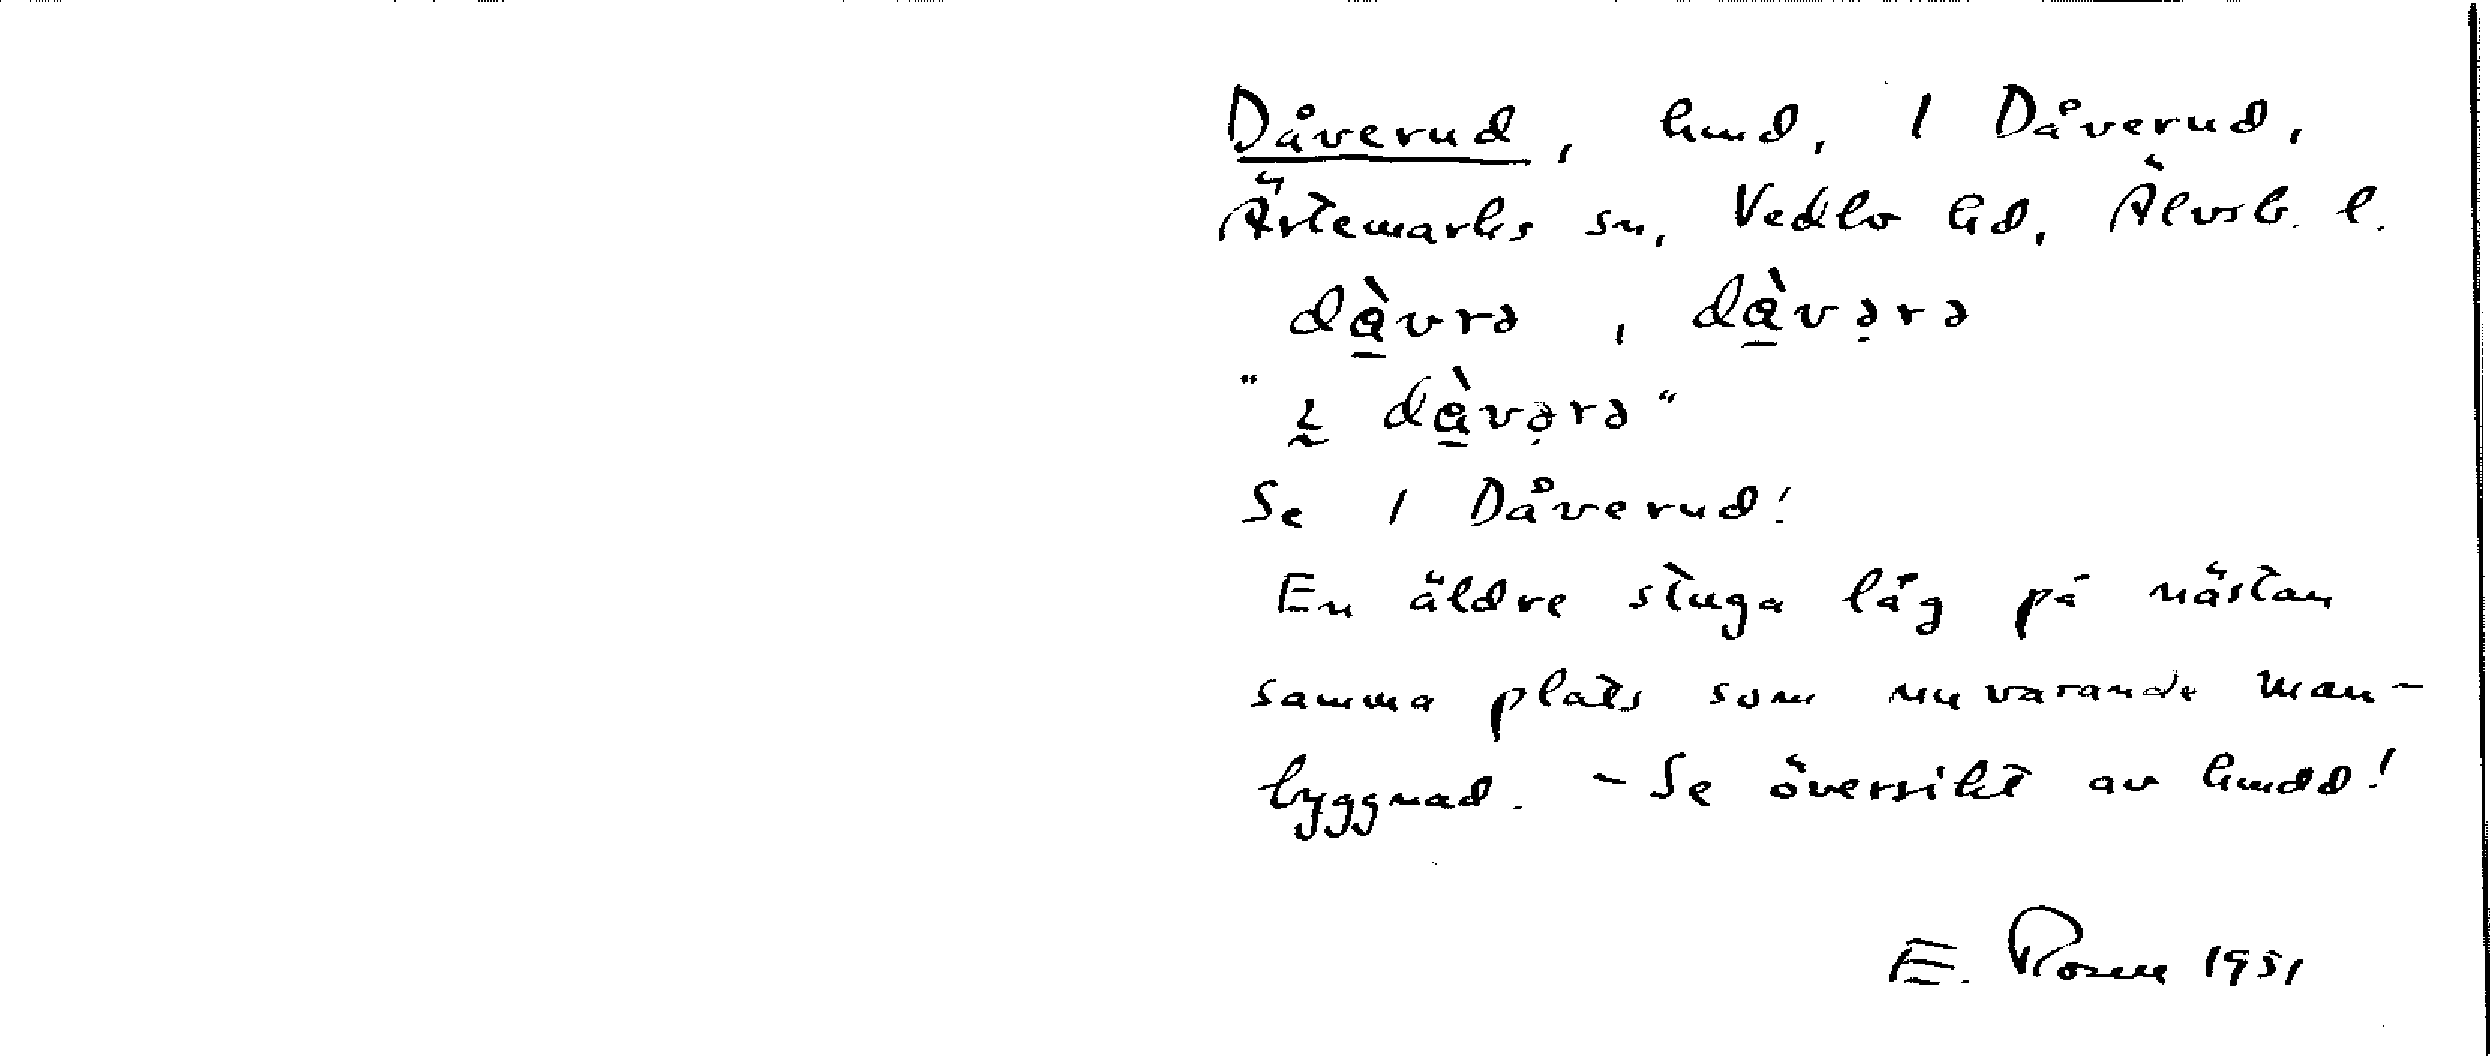 Dåverud, hmd, 1 Dåverud,
Ärtemarks sn, Vedbo hd, Älvsb. l.
dà̱vrə , dà̱və̣rə
"ı̰ dà̱və̣rə"
Se 1 Dåverud!
En äldre stuga låg på nästan
samma plats som nuvarande man-
byggnad. - Se översikt av hmdd!
E. Rosell 1951